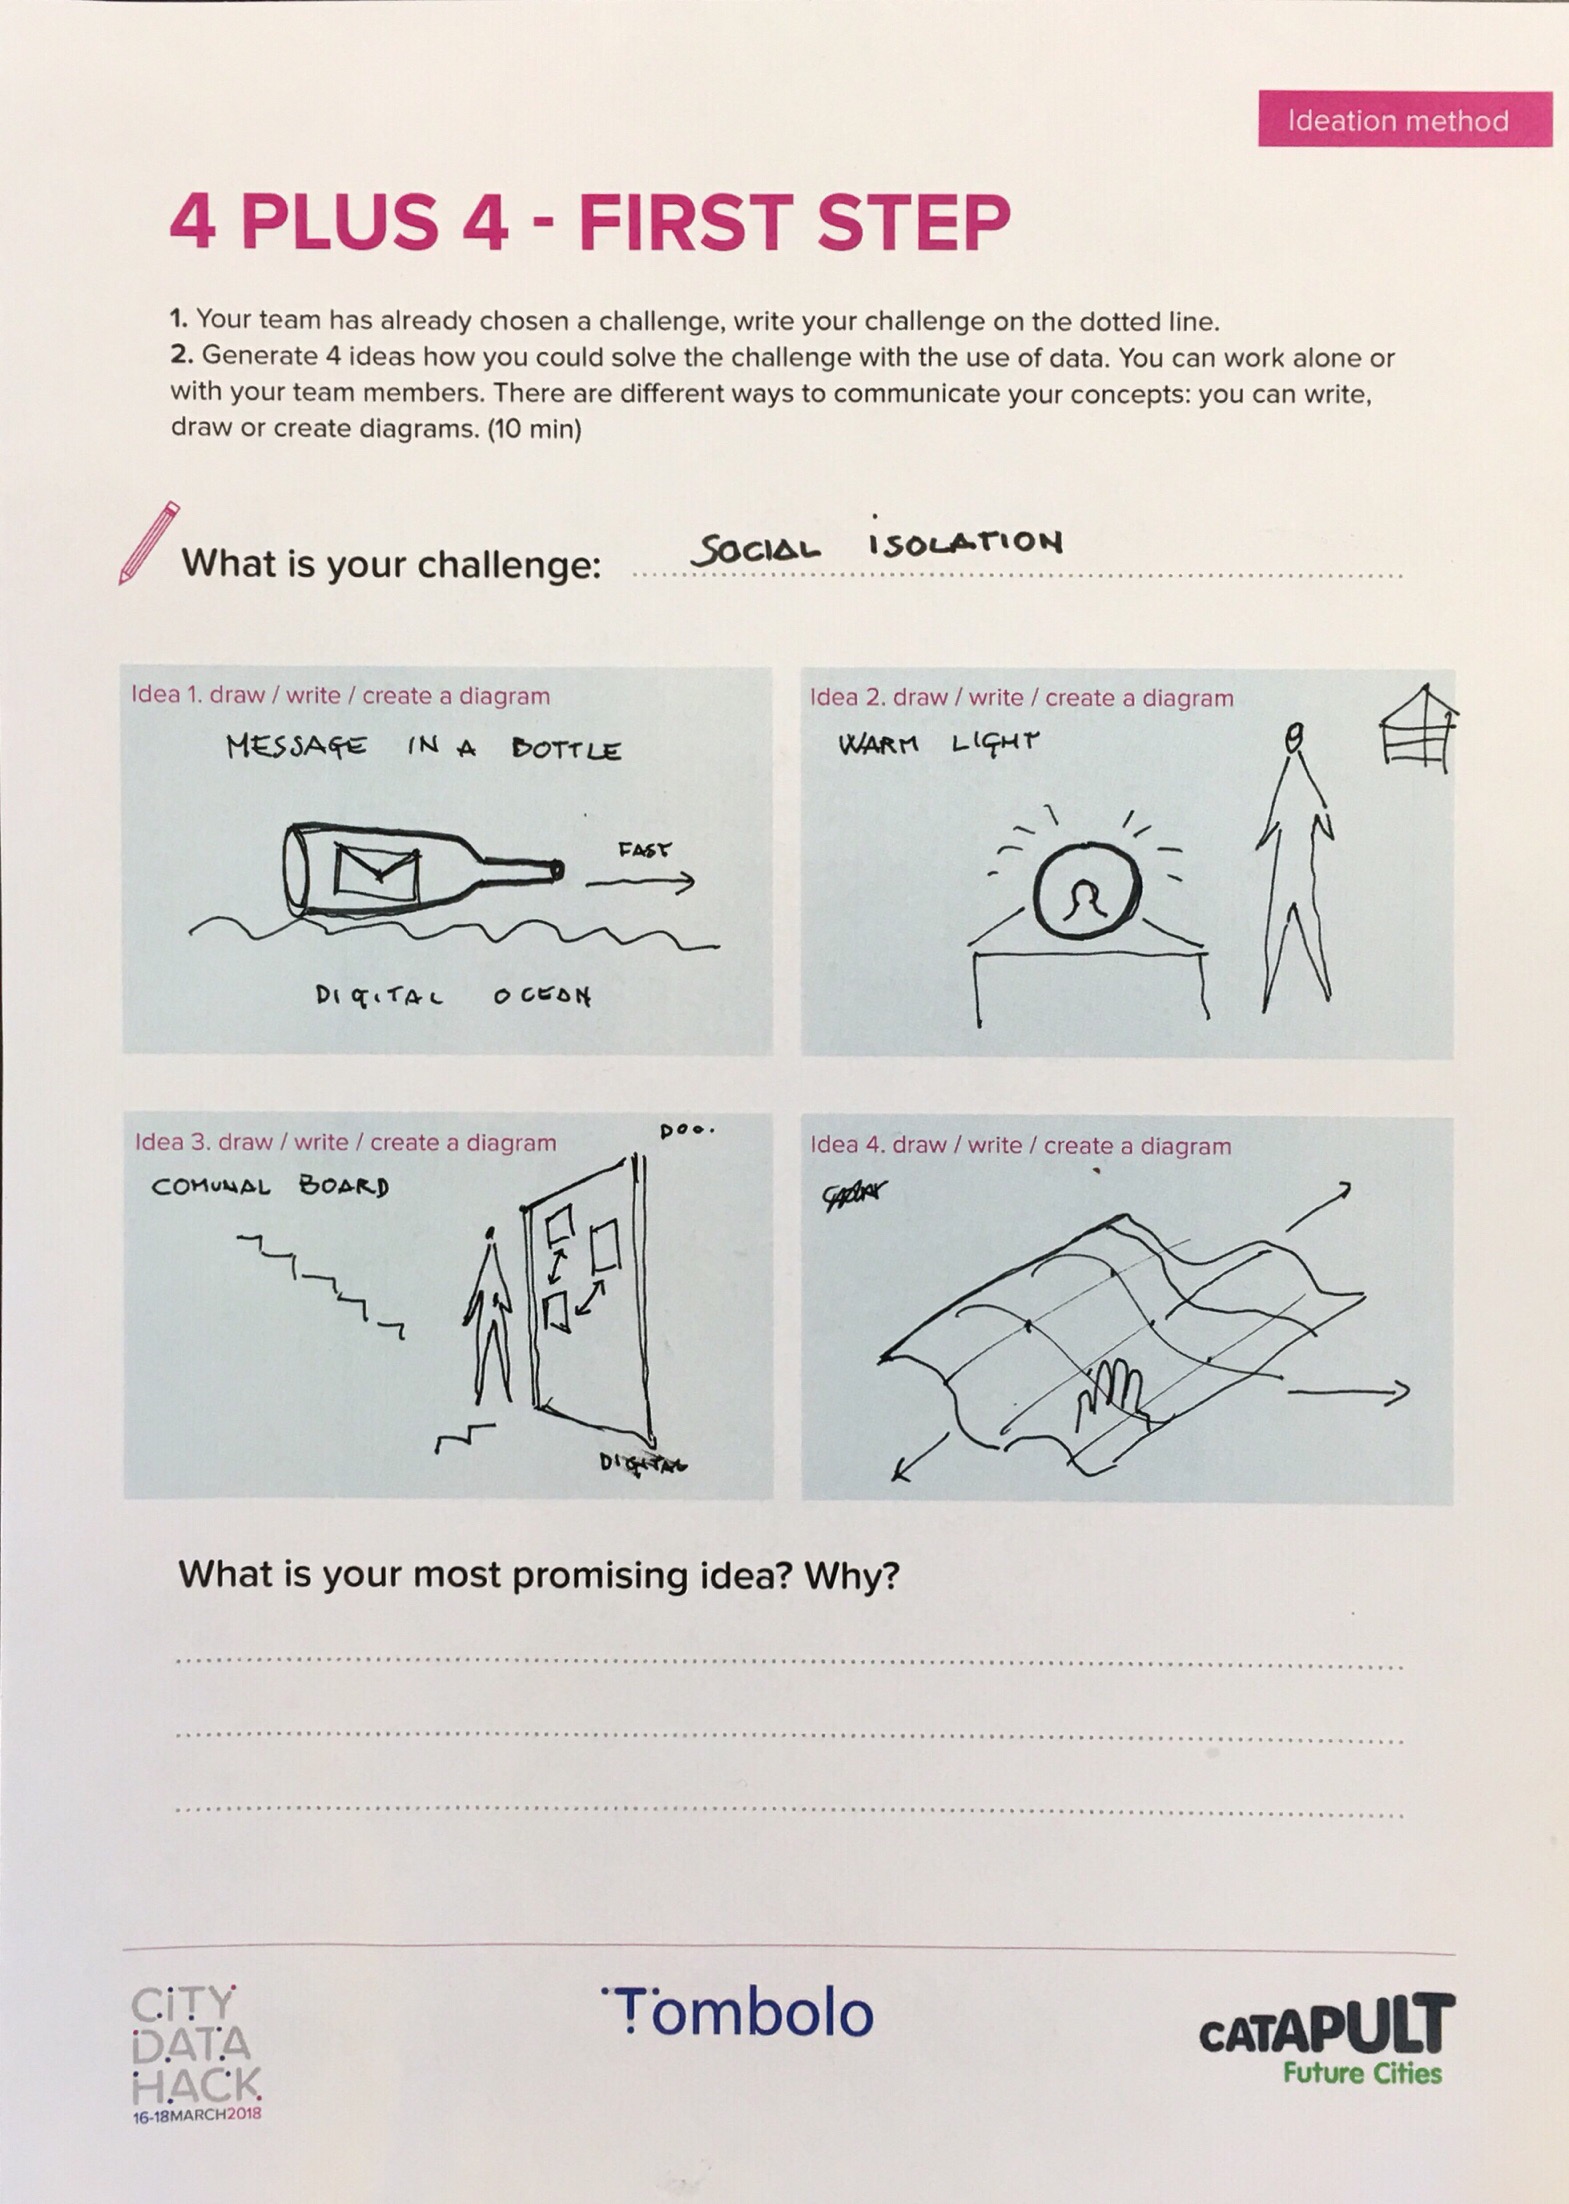 Ideation method
4 PLUS 4 - FIRST STEP
1. Your team has already chosen a challenge, write your challenge on the dotted line.
2. Generate 4 ideas how you could solve the challenge with the use of data. You can work alone or
with your team members. There are different ways to communicate your concepts: you can write,
draw or create diagrams. (10 min)
What is your challenge: SOCIAL iSOLATION
Idea 1. draw / write / create a diagram
MESSAGE IN A BOTTLE
FAST
DIGITAL OCEAN
Idea 2. draw / write / create a diagram
WARM LIGHT
Idea 3. draw / write / create a diagram
COMUNAL BOARD
DIGITAL
Idea 4. draw / write / create a diagram
What is your most promising idea? Why?
CiTY
DATA
HACK
16-18MARCH2018
Tombolo
CATAPULT
Future Cities